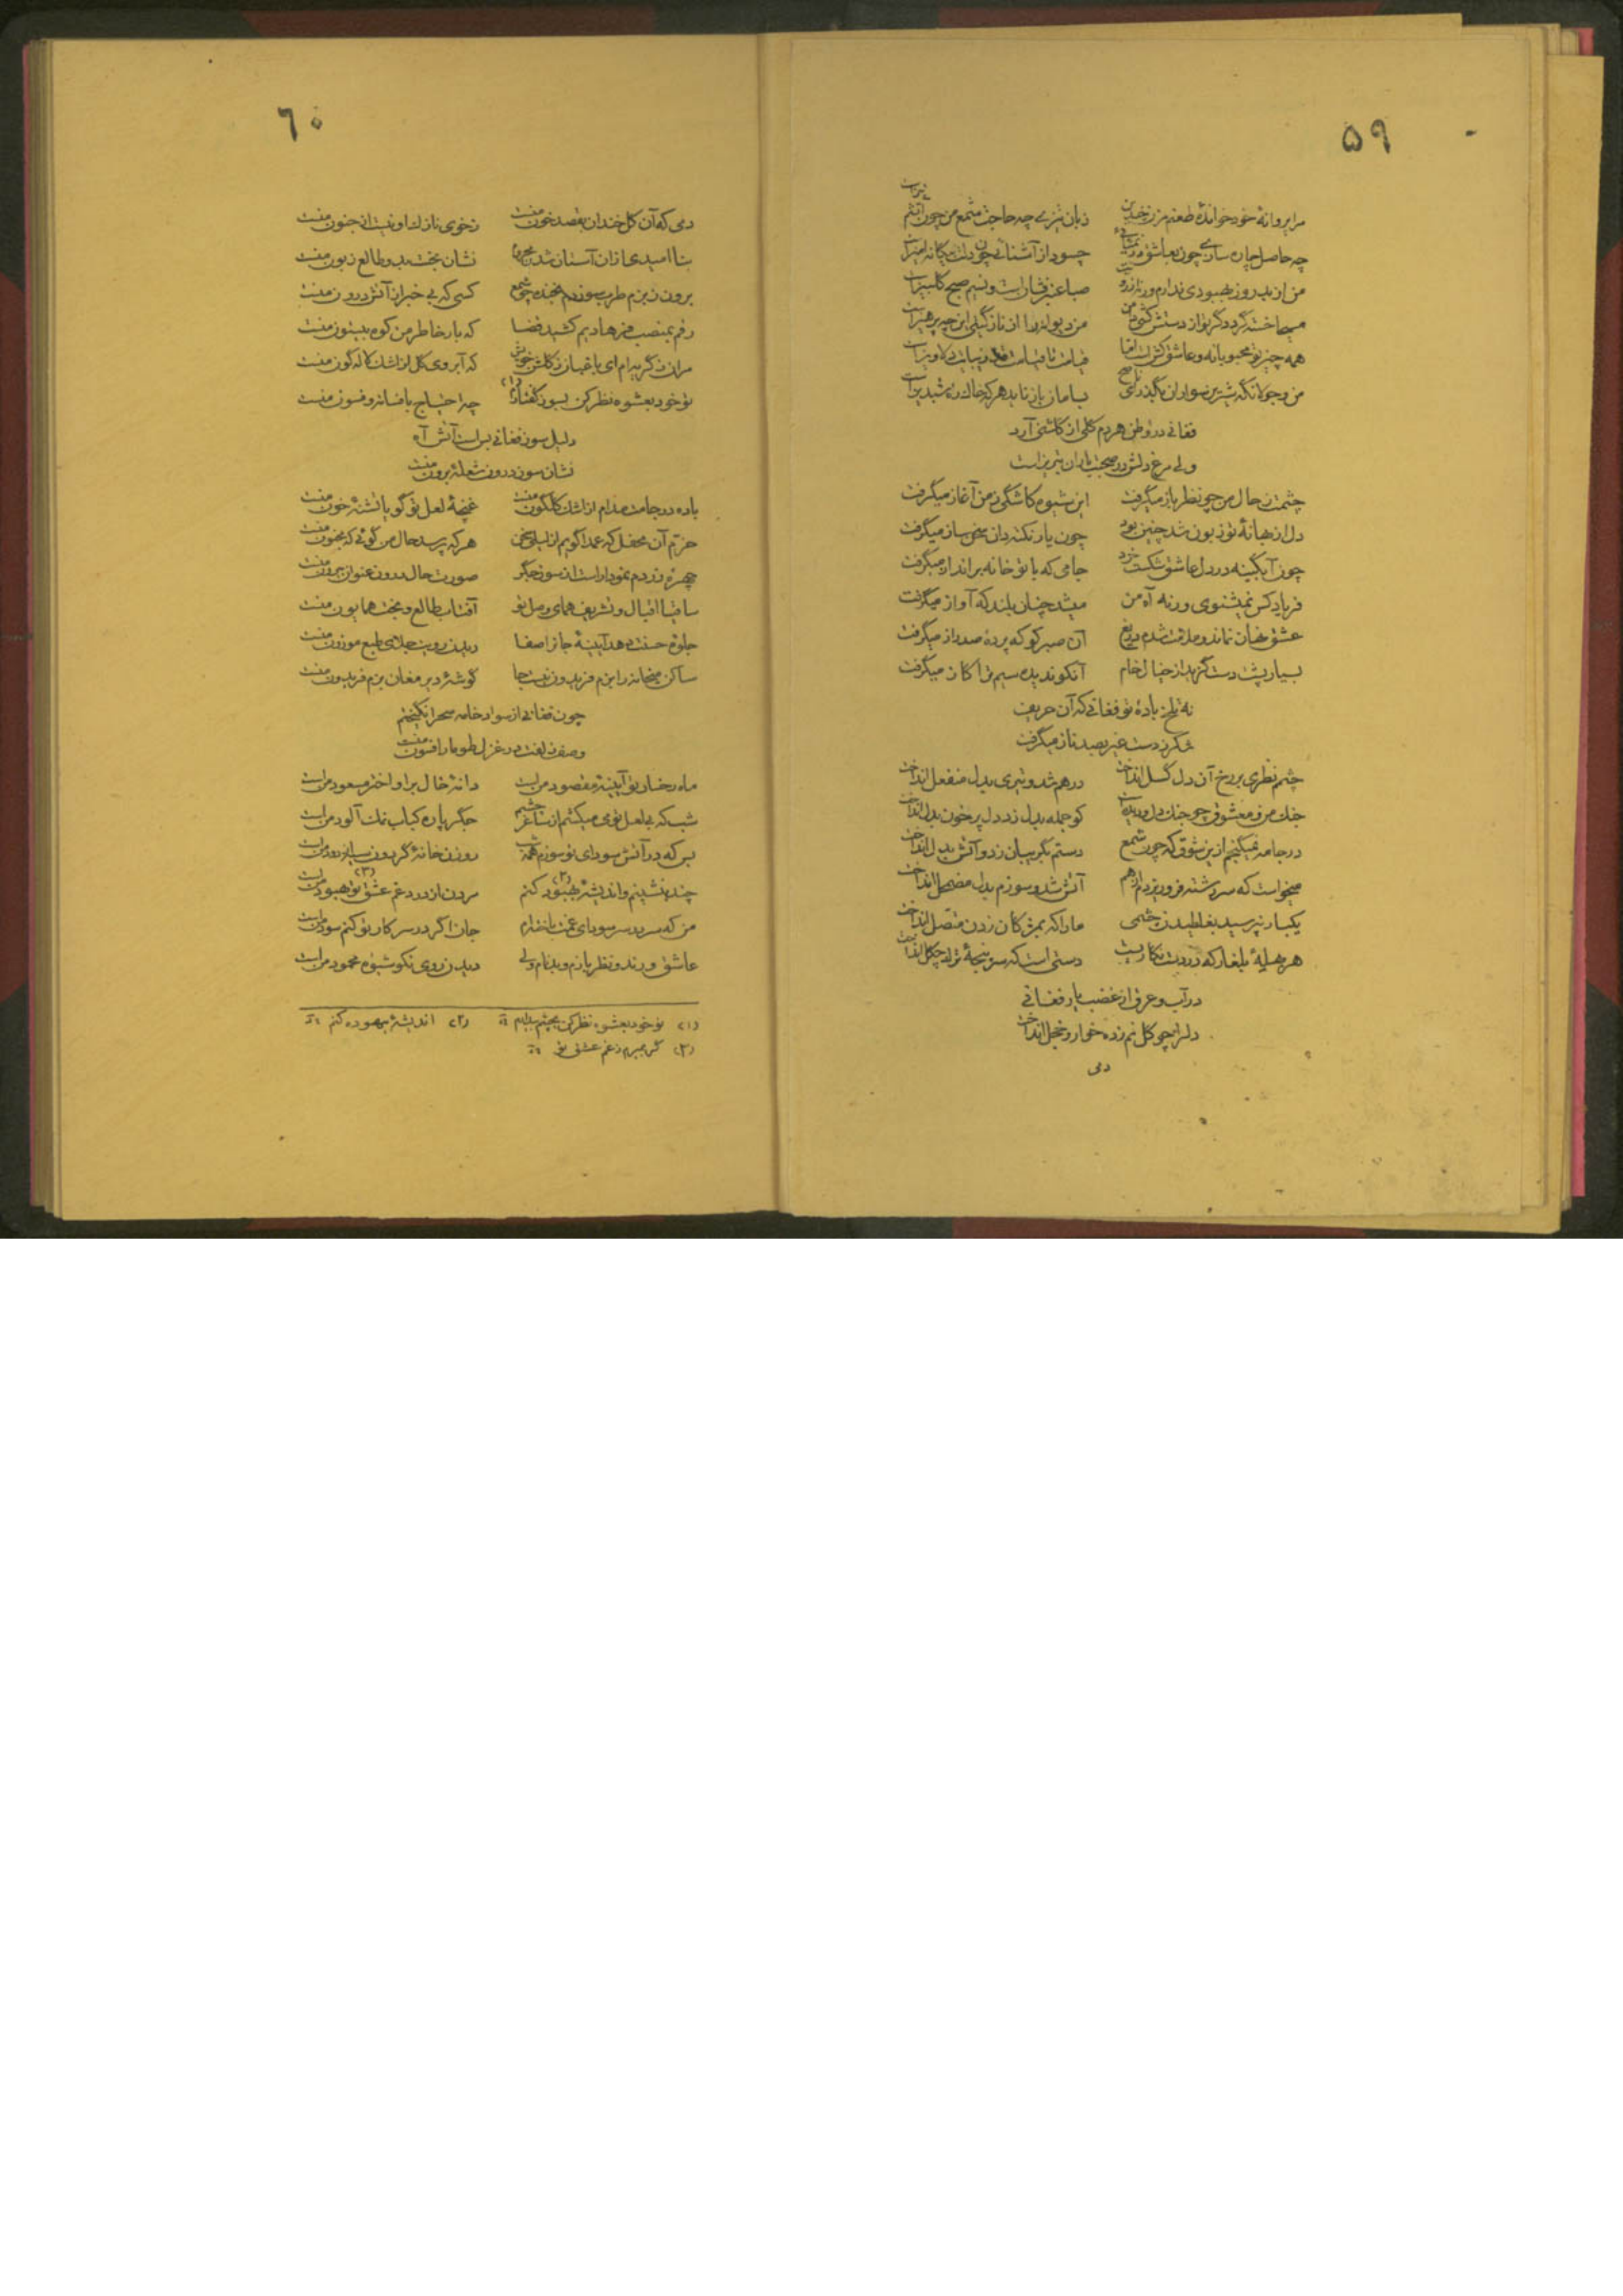 ۵۹
مرا پروانهٔ خود خواندهٔ طعنه مزن چندین زبان تیزی چه حاجت شمع من چون آتشم تیزست
چه حاصل چاره سازی چون بعاشق در نمیسازی چه سود از آشنائی چون دلت بیگانه آمیزست
من از بد روز بهبودی ندارم ورنه زد صبا عنبرفشان است و نسیم صبح گلبیزست
مسیحا خسته گردد گر تو از دستش کشی دامن من دیوانه را از نازگیها این چه پرهیزست
همه چیز تو محبوبانه و عاشق کش است اما قیامت دلاویزست
من و جولانگه شیرین سواران بگذر ای ناصح بسامان باز ناید هرکه خاک راه شبدیزست
فغانی در وطن هر دم گلی از گلشنی آرد
ولی مرغ دلش در صحبت یاران تبریزست
چشمت ز حال من چو نظر باز میگرفت این شیوه کاشکی ز من آغاز میگرفت
دل از بهانهٔ تو زبون شد چنین بود چون یار نکته دان سخن ساز میگرفت
چون آبگینه در دل عاشق شکست خرد جامی که با تو خانه برانداز میگرفت
فریاد کس نمیشنوی ورنه آه من میشد چنان بلند که آواز میگرفت
عشق نهان نماند و ملامت شدم دریغ آن صبر کو که پردهٔ صد راز میگرفت
بسیار پشت دست گزید از خیال خام آنکو ندیده سیم ترا گاز میگرفت
نه تلخ باده تو فغانی که آن حریف
شکر ز دست غیر بصد ناز میگرفت
چشم نظری بر رخ آن دل گسل انداخت درهم شد و تیری بدل منفعل انداخت
جنگ من و معشوق چو جنگ دل و دیده است کو جمله بدل زد دل پر خون بدل انداخت
در جامه نمیگنجم ازین شوق که چون شمع دستم بگریبان زد و آتش بدل انداخت
میخواست که سررشته فرو ریزدم از هم آتش شد و سوزم بدل مضمحل انداخت
یکبار نپرسید بغلطیدن چشمی ما را که بمژگان زدن متصل انداخت
هر حیلهٔ که در دست نگاریست دستی است که سرپنجهٔ ترک چگل انداخت
در آب و عرق از غضب یار فغانی
دلرا چو گل نم زده خوار و خجل انداخت
دمی
٦٠
دمی که آن گل خندان بقصد خون منست ز خوی نازک او نیست از جنون منست
بناامیدی ازان آستان شدم محروم نشان بخت بد و طالع زبون منست
برون ز بزم طرب سوزدم بخنده چو شمع کسی که بی خبر از آتش درون منست
رقم بمنصب فرهادیم کشید قضا که بار خاطر من کوه بیستون منست
مران ز گریه ام ای باغبان ز گلشن خویش که آبروی گل از اشک لاله گون منست
تو خود بعشوه نظر کن بسوز گفتارم (۱) چه احتیاج بافسانه و فسون منست
دلیل سوز فغانی بس است آتش آه
نشان سوز درون شعلهٔ برون منست
باده در جامت مدام از اشک گلگون منست غنچهٔ لعل تو گویا تشنهٔ خون منست
خرم آن محفل که عمدا گویم از لیلی سخن هر که پرسد حال من گوئی که مجنون منست
چهرهٔ زردم نمودار است از سوز جگر صورت حال درون عنوان بیرون منست
ساقیا اقبال و تشریف همای وصل تو آفتاب طالع و بخت همایون منست
جلوهٔ حسنت دهد آیینهٔ جانرا صفا دیدن رویت جلای طبع موزون منست
ساکن میخانه را بزم فریدون نیست جا گوشهٔ دیر مغان بزم فریدون منست
چون فغانی از سواد خامه سحر انگیختم
وصف زلفت در غزل طومار افسون منست
ماه رخسار تو آیینهٔ مقصود من است دانهٔ خال برا و اختر مسعود من است
شب که بی لعل تو می میکشم از ساغر چشم جگر پاره کباب نمک آلود من است
بس که در آتش سودای تو سوزم همه شب روزن خانهٔ گردون سیه از دود من است
چند بنشینم و اندیشهٔ بهبود کنم (۲) مردن از درد و غم عشق تو بهبود من است (۳)
من که سر بر سر سودای غمت باخته ام جان اگر در سر کار تو کنم سود من است
عاشق و رند و نظر بازم و بدنام ولی دیدن روی نکو شیوهٔ محمود من است
(۱) تو خود بعشوه نظر کن بچشم (۲) اندیشهٔ بیهوده کنم
(۳) گر بمیرم ز غم عشق تو